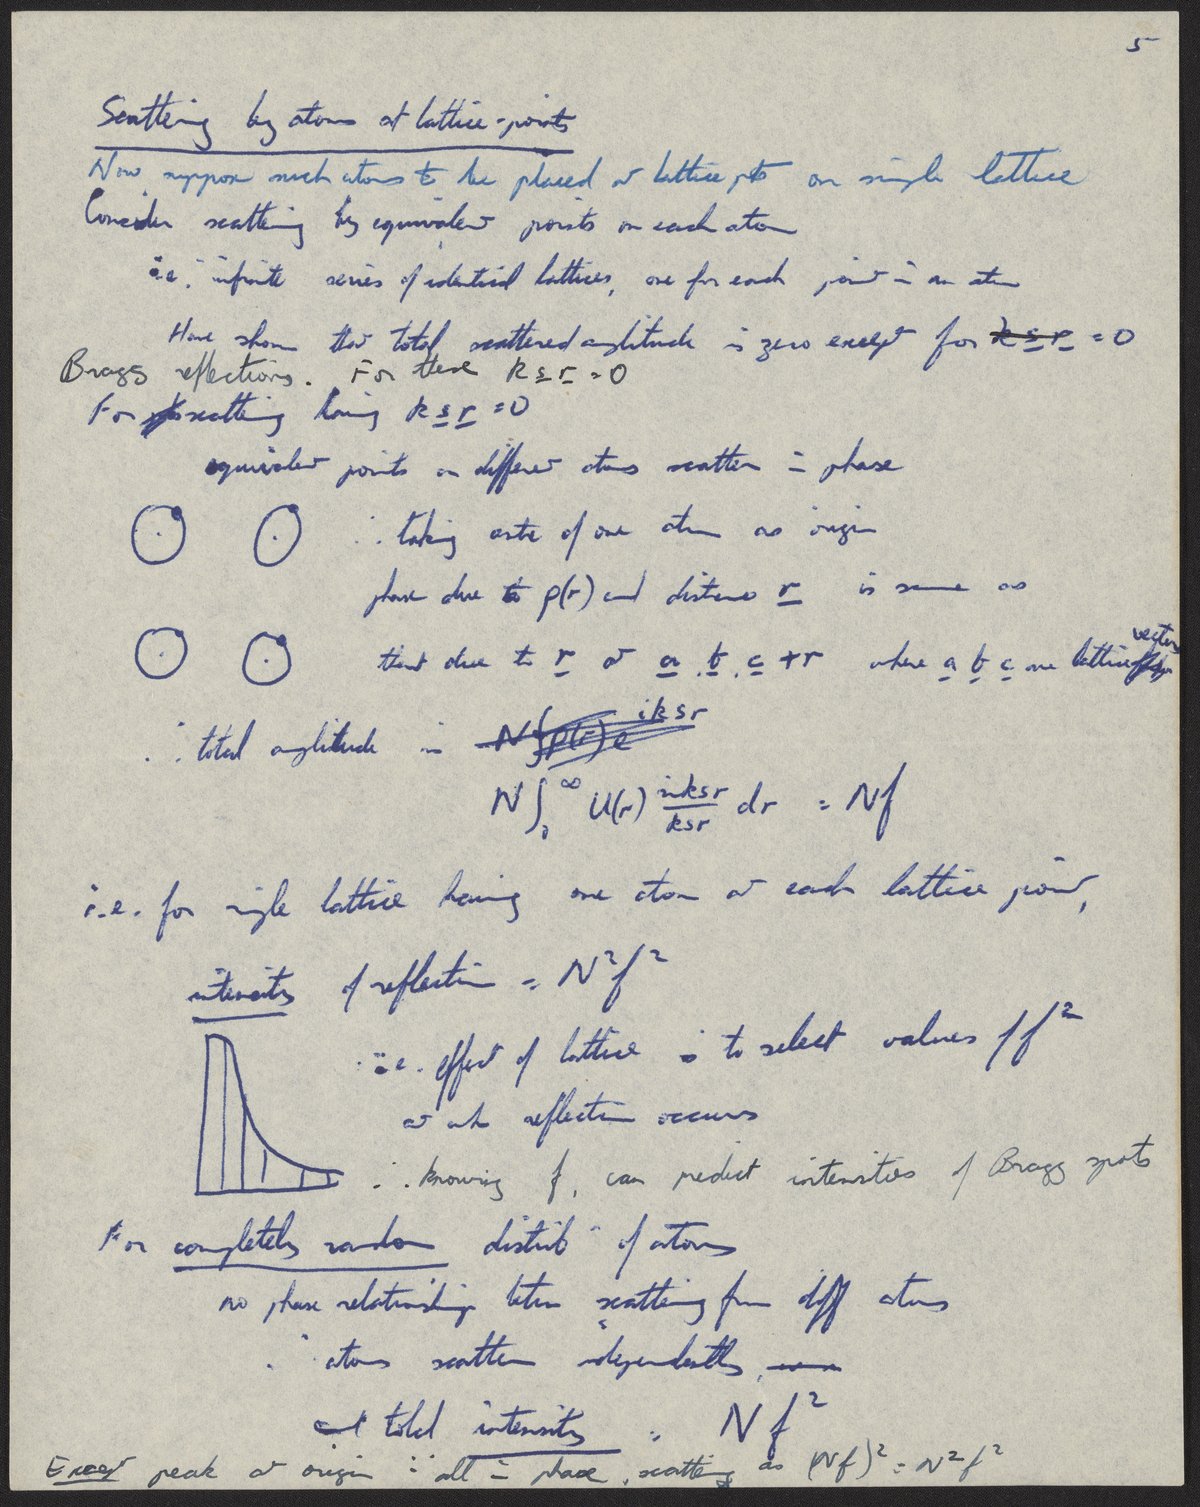 5
Scattering by atoms at lattice-points
Now suppose such atoms to be placed at lattice pts on single lattice
Consider scattering by equivalent points on each atom
i.e. infinite series of identical lattices, one for each point in an atom
Have shown that total scattered amplitude is zero except for k s r = 0
Bragg reflections. For these k s r = 0
For scattering having k s r = 0
equivalent points on different atoms scatter in phase
∴ taking centre of one atom as origin
phase due to ρ(r) and distance r is same as
that due to r at a, b, c + r where a b c are lattice vectors
∴ total amplitude is N∫ρ(r) e iksr
N∫₀^∞ U(r) sin ksr / ksr dr = Nf
i.e. for single lattice having one atom at each lattice point,
intensity of reflection = N²f²
i.e. effect of lattice is to select values of f²
at wh reflection occurs
∴ knowing f, can predict intensities of Bragg spots
For completely random distribⁿ of atoms
no phase relationship betwn scattering from diff atoms
∴ atoms scatter independently,
total intensity = Nf²
Except peak at origin ∵ all in phase, scattering as (Nf)² = N²f²